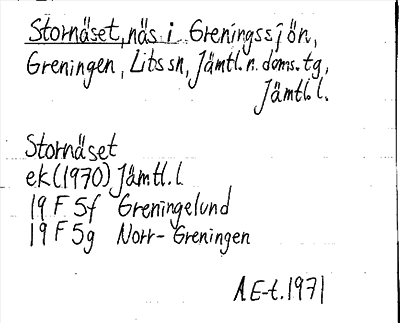 Stornäset, näs i Greningssjön,
Greningen, Lits sn, Jämtl. n. doms. tg,
Jämtl. l.
Stornäset
ek (1970) Jämtl. l
19 F 5f Greningelund
19 F 5g Norr-Greningen
A E-t. 1971